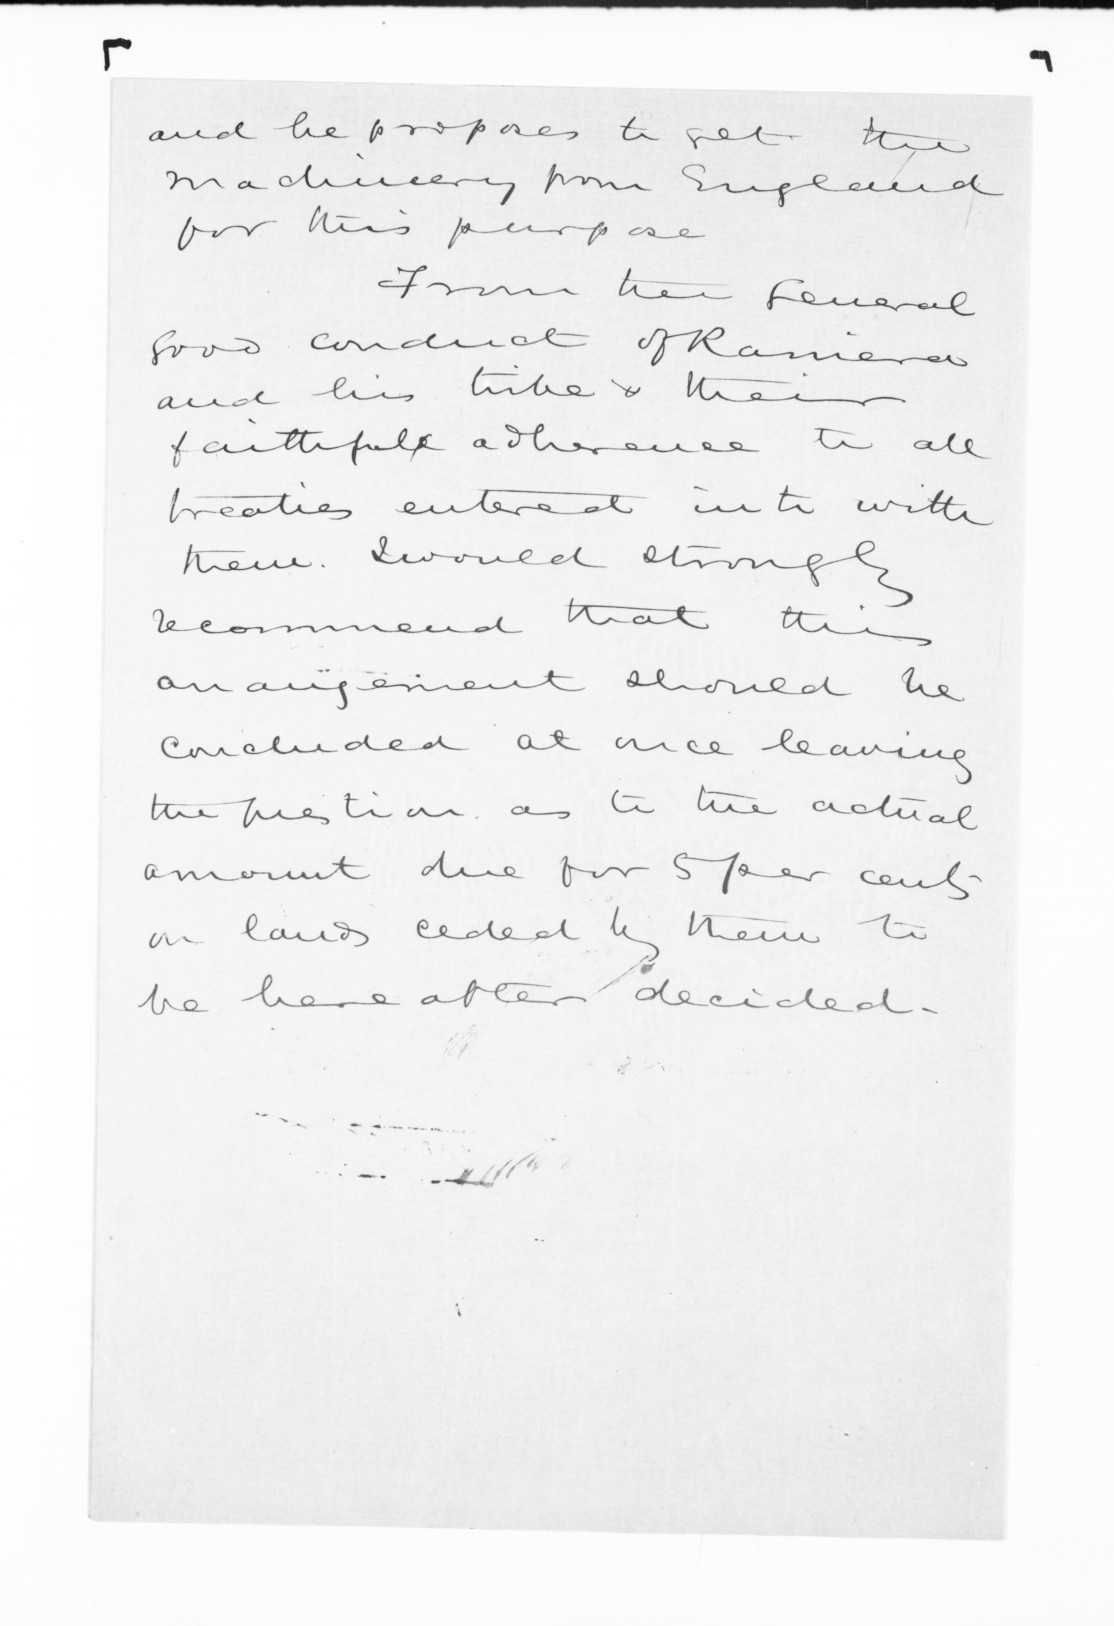 and he proposes to get the
machinery from England
for this purpose
From the general
good conduct of Raniera
and his tribe & their
faithful adherence to all
treaties entered into with
them. I would strongly
recommend that this
arrangement should be
concluded at once leaving
the question as to the actual
amount due for 5 per cents
on lands ceded by them to
be hereafter decided -